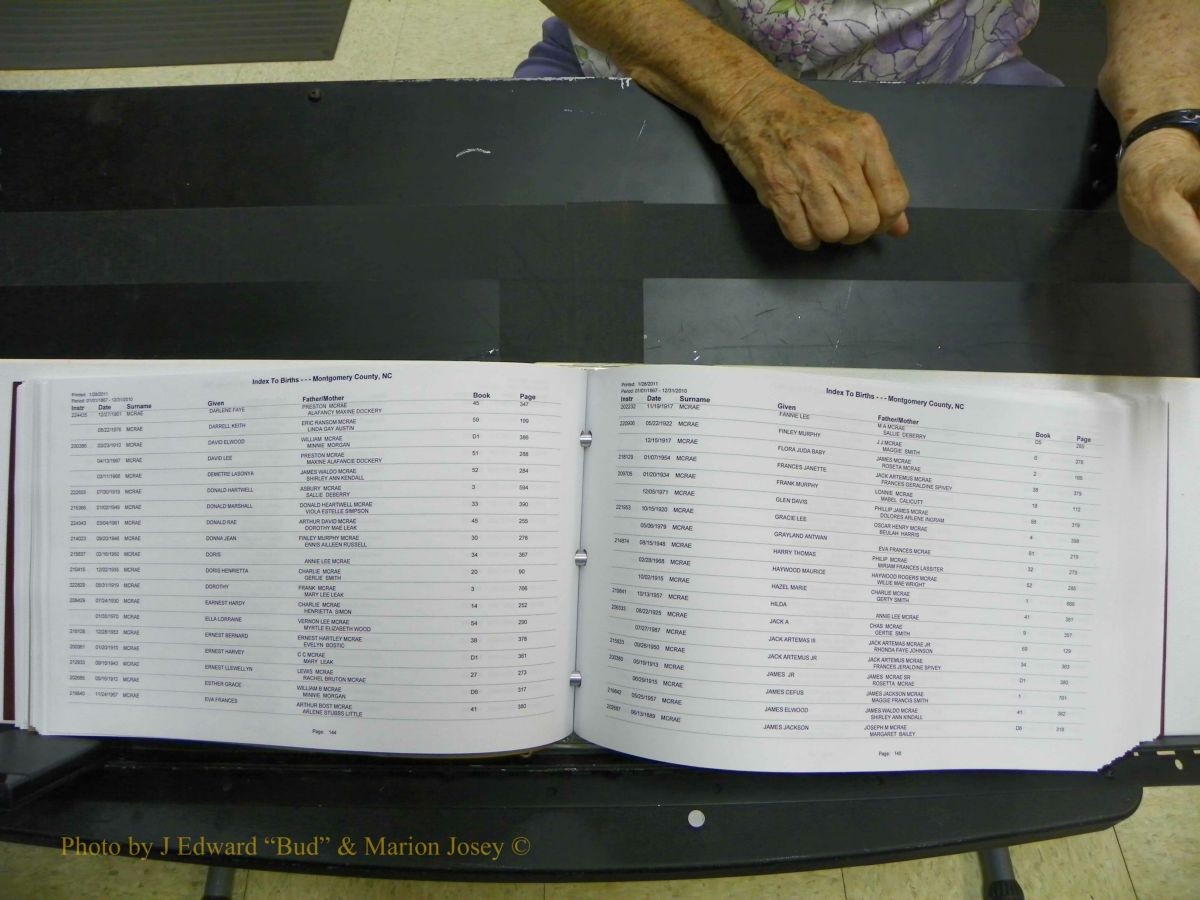 Index To Births - - - Montgomery County, NC
Printed: 1/28/2011
Period: 01/01/1867 - 12/31/2010
Instr Date Surname Given Father/Mother Book Page
MCRAE DARLENE FAYE PRESTON MCRAE 45 347
ALAFANCY MAXINE DOCKERY
MCRAE DARRELL KEITH ERIC RANSOM MCRAE 59 199
LINDA GAY AUSTIN
MCRAE DAVID ELWOOD WILLIAM MCRAE D1 386
MINNIE MORGAN
MCRAE DAVID LEE PRESTON MCRAE 51 288
MAXINE ALAFANCIE DOCKERY
MCRAE DEMETRE LASONYA JAMES WALDO MCRAE 52 284
SHIRLEY ANN KENDALL
MCRAE DONALD HARTWELL ASBURY MCRAE 3 594
SALLIE DEBERRY
MCRAE DONALD MARSHALL DONALD HEARTWELL MCRAE 33 390
VIOLA ESTELLE SIMPSON
MCRAE DONALD RAE ARTHUR DAVID MCRAE 45 255
DOROTHY MAE LEAK
MCRAE DONNA JEAN FINLEY MURPHY MCRAE 30 276
ENNIS AILLEEN RUSSELL
MCRAE DORIS 34 367
ANNIE LEE MCRAE
MCRAE DORIS HENRIETTA CHARLIE MCRAE 20 90
GERLIE SMITH
MCRAE DOROTHY FRANK MCRAE 3 766
MARY LEE LEAK
MCRAE EARNEST HARDY CHARLIE MCRAE 14 252
HENRIETTA SIMON
MCRAE ELLA LORRAINE VERNON LEE MCRAE 54 290
MYRTLE ELIZABETH WOOD
MCRAE ERNEST BERNARD ERNEST HARTLEY MCRAE 38 378
EVELYN BOSTIC
MCRAE ERNEST HARVEY C C MCRAE D1 361
MARY LEAK
MCRAE ERNEST LLSWELLYN LEWIS MCRAE 27 273
RACHEL BRUTON MCRAE
MCRAE ESTHER GRACE WILLIAM B MCRAE D6 317
MINNIE MORGAN
MCRAE EVA FRANCES ARTHUR BOST MCRAE 41 380
ARLENE STUBBS LITTLE
Page: 144
Index To Births - - - Montgomery County, NC
Printed: 1/28/2011
Period: 01/01/1867 - 12/31/2010
Instr Date Surname Given Father/Mother Book Page
202232 11/19/1917 MCRAE FANNIE LEE M A MCRAE D5
SALLIE DEBERRY
220906 05/22/1922 MCRAE FINLEY MURPHY J J MCRAE 6
MAGGIE SMITH
12/15/1917 MCRAE FLORA JUDA BABY JAMES MCRAE 2
ROSETA MCRAE
218129 01/07/1954 MCRAE FRANCES JANETTE JACK ARTEMUS MCRAE 38 379
FRANCES GERALDINE SPIVEY
209705 01/20/1934 MCRAE FRANK MURPHY LONNIE MCRAE 18 112
MABEL CALICUTT
12/05/1971 MCRAE GLEN DAVIS PHILLIP JAMES MCRAE 319
DOLORES ARLENE INGRAM
10/15/1920 MCRAE GRACIE LEE OSCAR HENRY MCRAE 4
BEULAH HARRIS
05/06/1979 MCRAE GRAYLAND ANTWAN 61 219
EVA FRANCES MCRAE
214874 08/15/1948 MCRAE HARRY THOMAS PHILIP MCRAE 32 273
MIRIAM FRANCES LASSITER
02/28/1968 MCRAE HAYWOOD MAURICE HAYWOOD ROGERS MCRAE 52
WILLIE MAE WRIGHT
10/02/1915 MCRAE HAZEL MARIE CHARLIE MCRAE 1
GERTY SMITH
10/13/1957 MCRAE HILDA 41 381
ANNIE LEE MCRAE
08/22/1925 MCRAE JACK A CHAS MCRAE 9 357
GERTIE SMITH
07/27/1987 MCRAE JACK ARTEMAS III JACK ARTEMAS MCRAE JR 69 129
RHONDA FAYE JOHNSON
09/26/1950 MCRAE JACK ARTEMUS JR JACK ARTEMUS MCRAE 34 363
FRANCES JERALDINE SPIVEY
05/19/1913 MCRAE JAMES JR JAMES MCRAE SR D1 380
ROSETTA MCRAE
06/29/1915 MCRAE JAMES CEFUS JAMES JACKSON MCRAE 1 701
MAGGIE FRANCIS SMITH
05/25/1957 MCRAE JAMES ELWOOD JAMES WALDO MCRAE 41 382
SHIRLEY ANN KINDALL
06/13/1889 MCRAE JAMES JACKSON JOSEPH M MCRAE D6 318
MARGARET BAILEY
Page: 145
Photo by J Edward “Bud” & Marion Josey ©